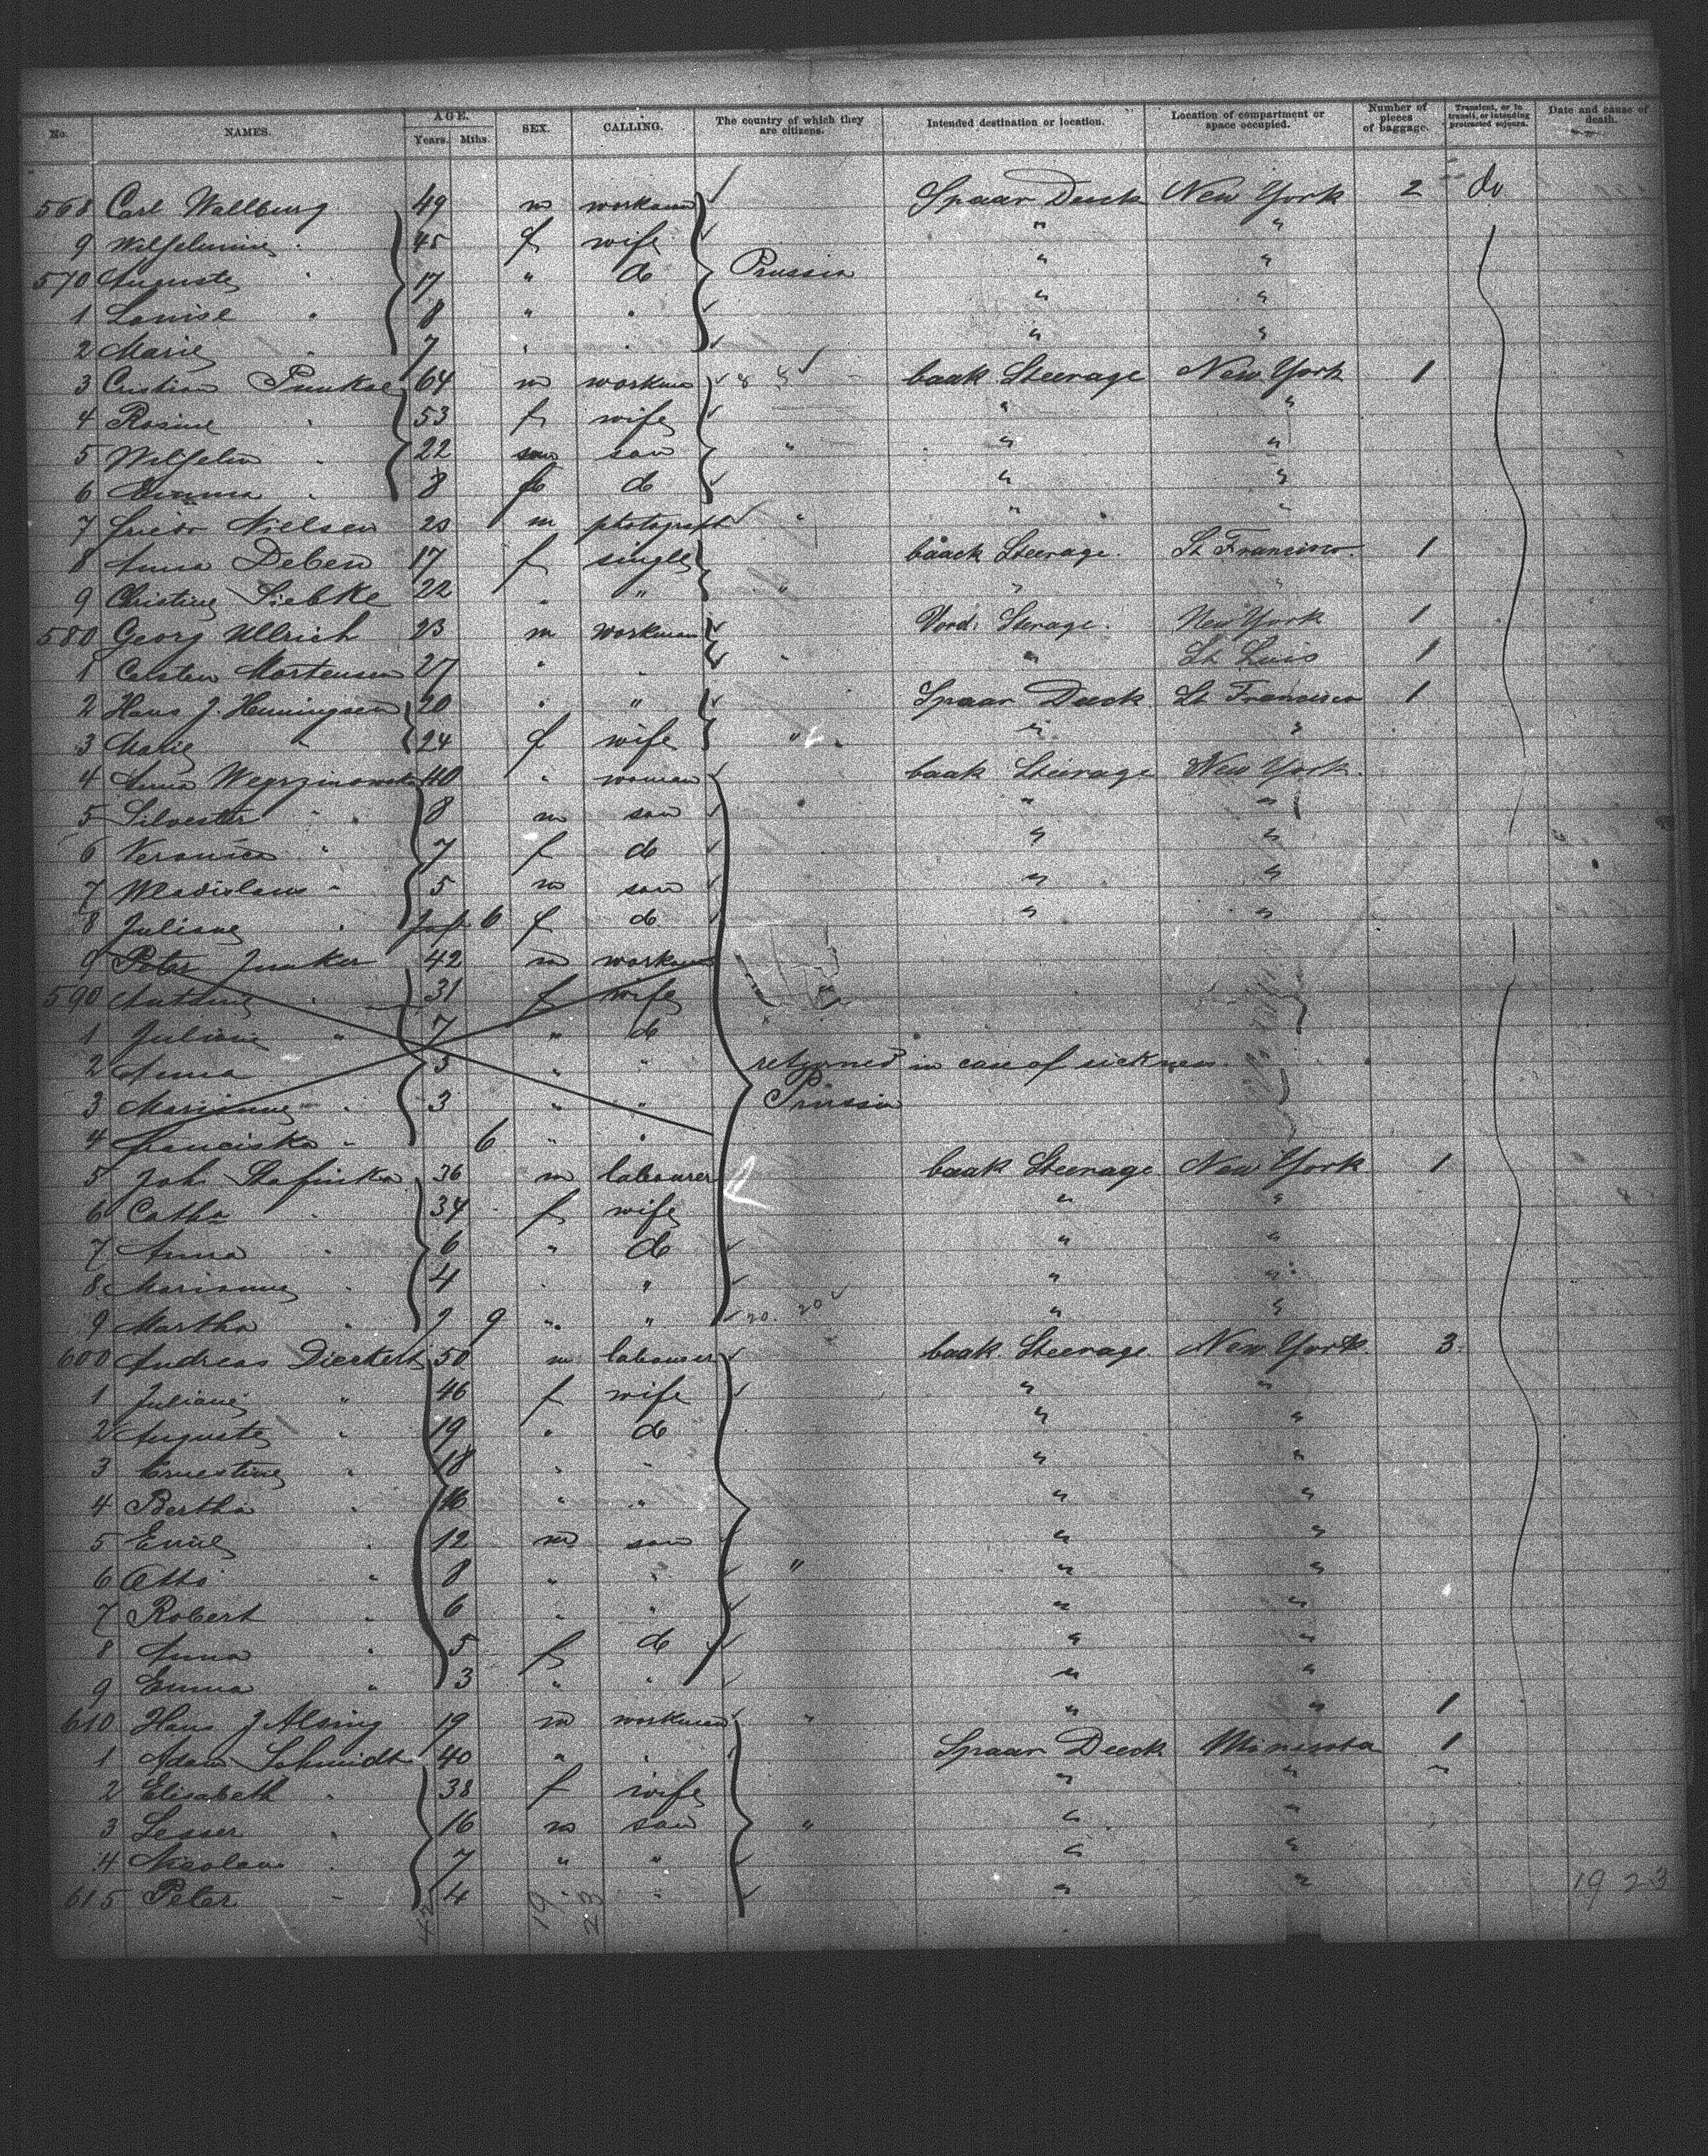 No. NAMES. AGE. Years. Mths. SEX. CALLING. The country of which they are citizens. Intended destination or location. Location of compartment or space occupied. Number of pieces of baggage. Transient, or in transit, or intending protracted sojourn. Date and cause of death.
568 Carl Wallburg 49 m workman Spaar Deck New York 2 do
9 Wilhelmine " 45 f wife " "
570 Auguste " 17 " do Prussia " "
1 Louise " 8 " " " "
2 Marie " 7 " " " "
3 Cristian 64 m workman baak Steerage New York 1
4 Rosine " 53 f wife " "
5 Wilhelm " 22 son " " "
6 Emma " 8 f do " "
7 Nielsen 23 m photograph " " "
8 Anna Deben 17 f single baack Steerage. St Francisco. 1
9 Christine Siebke 22 " " " " "
580 Georg Ullrich 23 m workman Vord. Sterage. New York 1
1 Carsten Mortensen 27 " " " " St Luis 1
2 Hans J. Henningsen 20 " " Spaar Deck St Francisco 1
3 Marie " 24 f wife " " "
4 Anna Wegrzinowska 40 " woman baak Steerage New York.
5 Silvester " 8 m son " "
6 Veronica " 7 f do " "
7 Wladislaus " 5 m son " "
8 Juliane " 6 f do " "
9 Peter Junker 42 m workman
590 " 31 f wife
1 Juliane " 7 " do
2 Anna 5 " "
3 Marianne " 3 " "
4 Franciska " 6 " "
returned in case of sickness.
Prussia
5 Joh. 36 m labourer baak Steerage New York 1
6 Catha " 34 f wife " "
7 Anna " 6 " do " "
8 Marianne " 4 " " " "
9 Martha " 2 9 " " 20. 20 " "
600 Andreas Dieckert 50 m labourer baak Steerage. New York 3
1 Juliane " 46 f wife " "
2 Auguste " 19 " do " "
3 Ernestine " 18 " " " "
4 Bertha " 16 " " " "
5 Emil " 12 m son " "
6 Otto " 8 " " " " "
7 Robert " 6 " " " "
8 Anna " 5 f do " "
9 Emma " 3 " " " "
610 Hans J Alsing 19 m workman " " " 1
1 Adam Schmidt 40 " " Spaar Deck Minesota 1
2 Elisabeth " 38 f wife " " "
3 Lesser " 16 m son " " "
4 Nicolaus " 7 " " " "
615 Peter " 4 " " " "
42 19 23 19 23